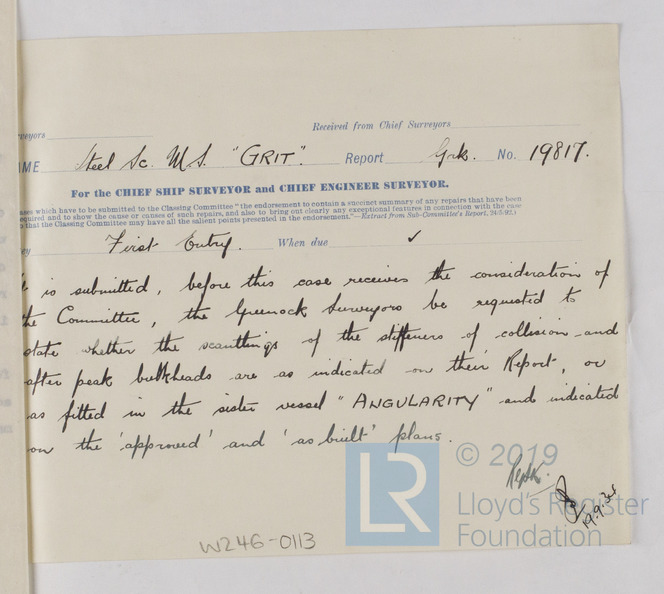 veyors
Received from Chief Surveyors
AME Steel Sc. M.S. "GRIT". Report Grk. No. 19817.
For the CHIEF SHIP SURVEYOR and CHIEF ENGINEER SURVEYOR.
ases which have to be submitted to the Classing Committee "the endorsement to contain a succinct summary of any repairs that have been
equired and to show the cause or causes of such repairs, and also to bring out clearly any exceptional features in connection with the case
o that the Classing Committee may have all the salient points presented in the endorsement."—Extract from Sub-Committee's Report, 24/5/92.)
ey First Entry. When due ✓
It is submitted, before this case receives the consideration of
the Committee, the Greenock Surveyors be requested to
state whether the scantlings of the stiffeners of collision and
after peak bulkheads are as indicated on their Report, or
as fitted in the sister vessel "ANGULARITY" and indicated
on the 'approved' and 'as built' plans.
© 2019
LR
Lloyd's Register
Foundation
19.9.34
W246-0113